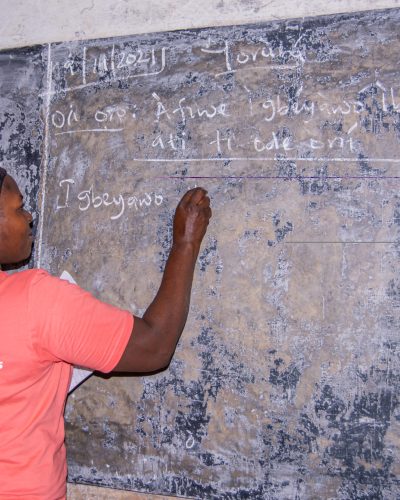 9/11/2021 Yorùbá
Orí ọ̀rọ̀: Àfiwé Ìgbéyàwó
àti ti òde òní
Ìgbeyawo